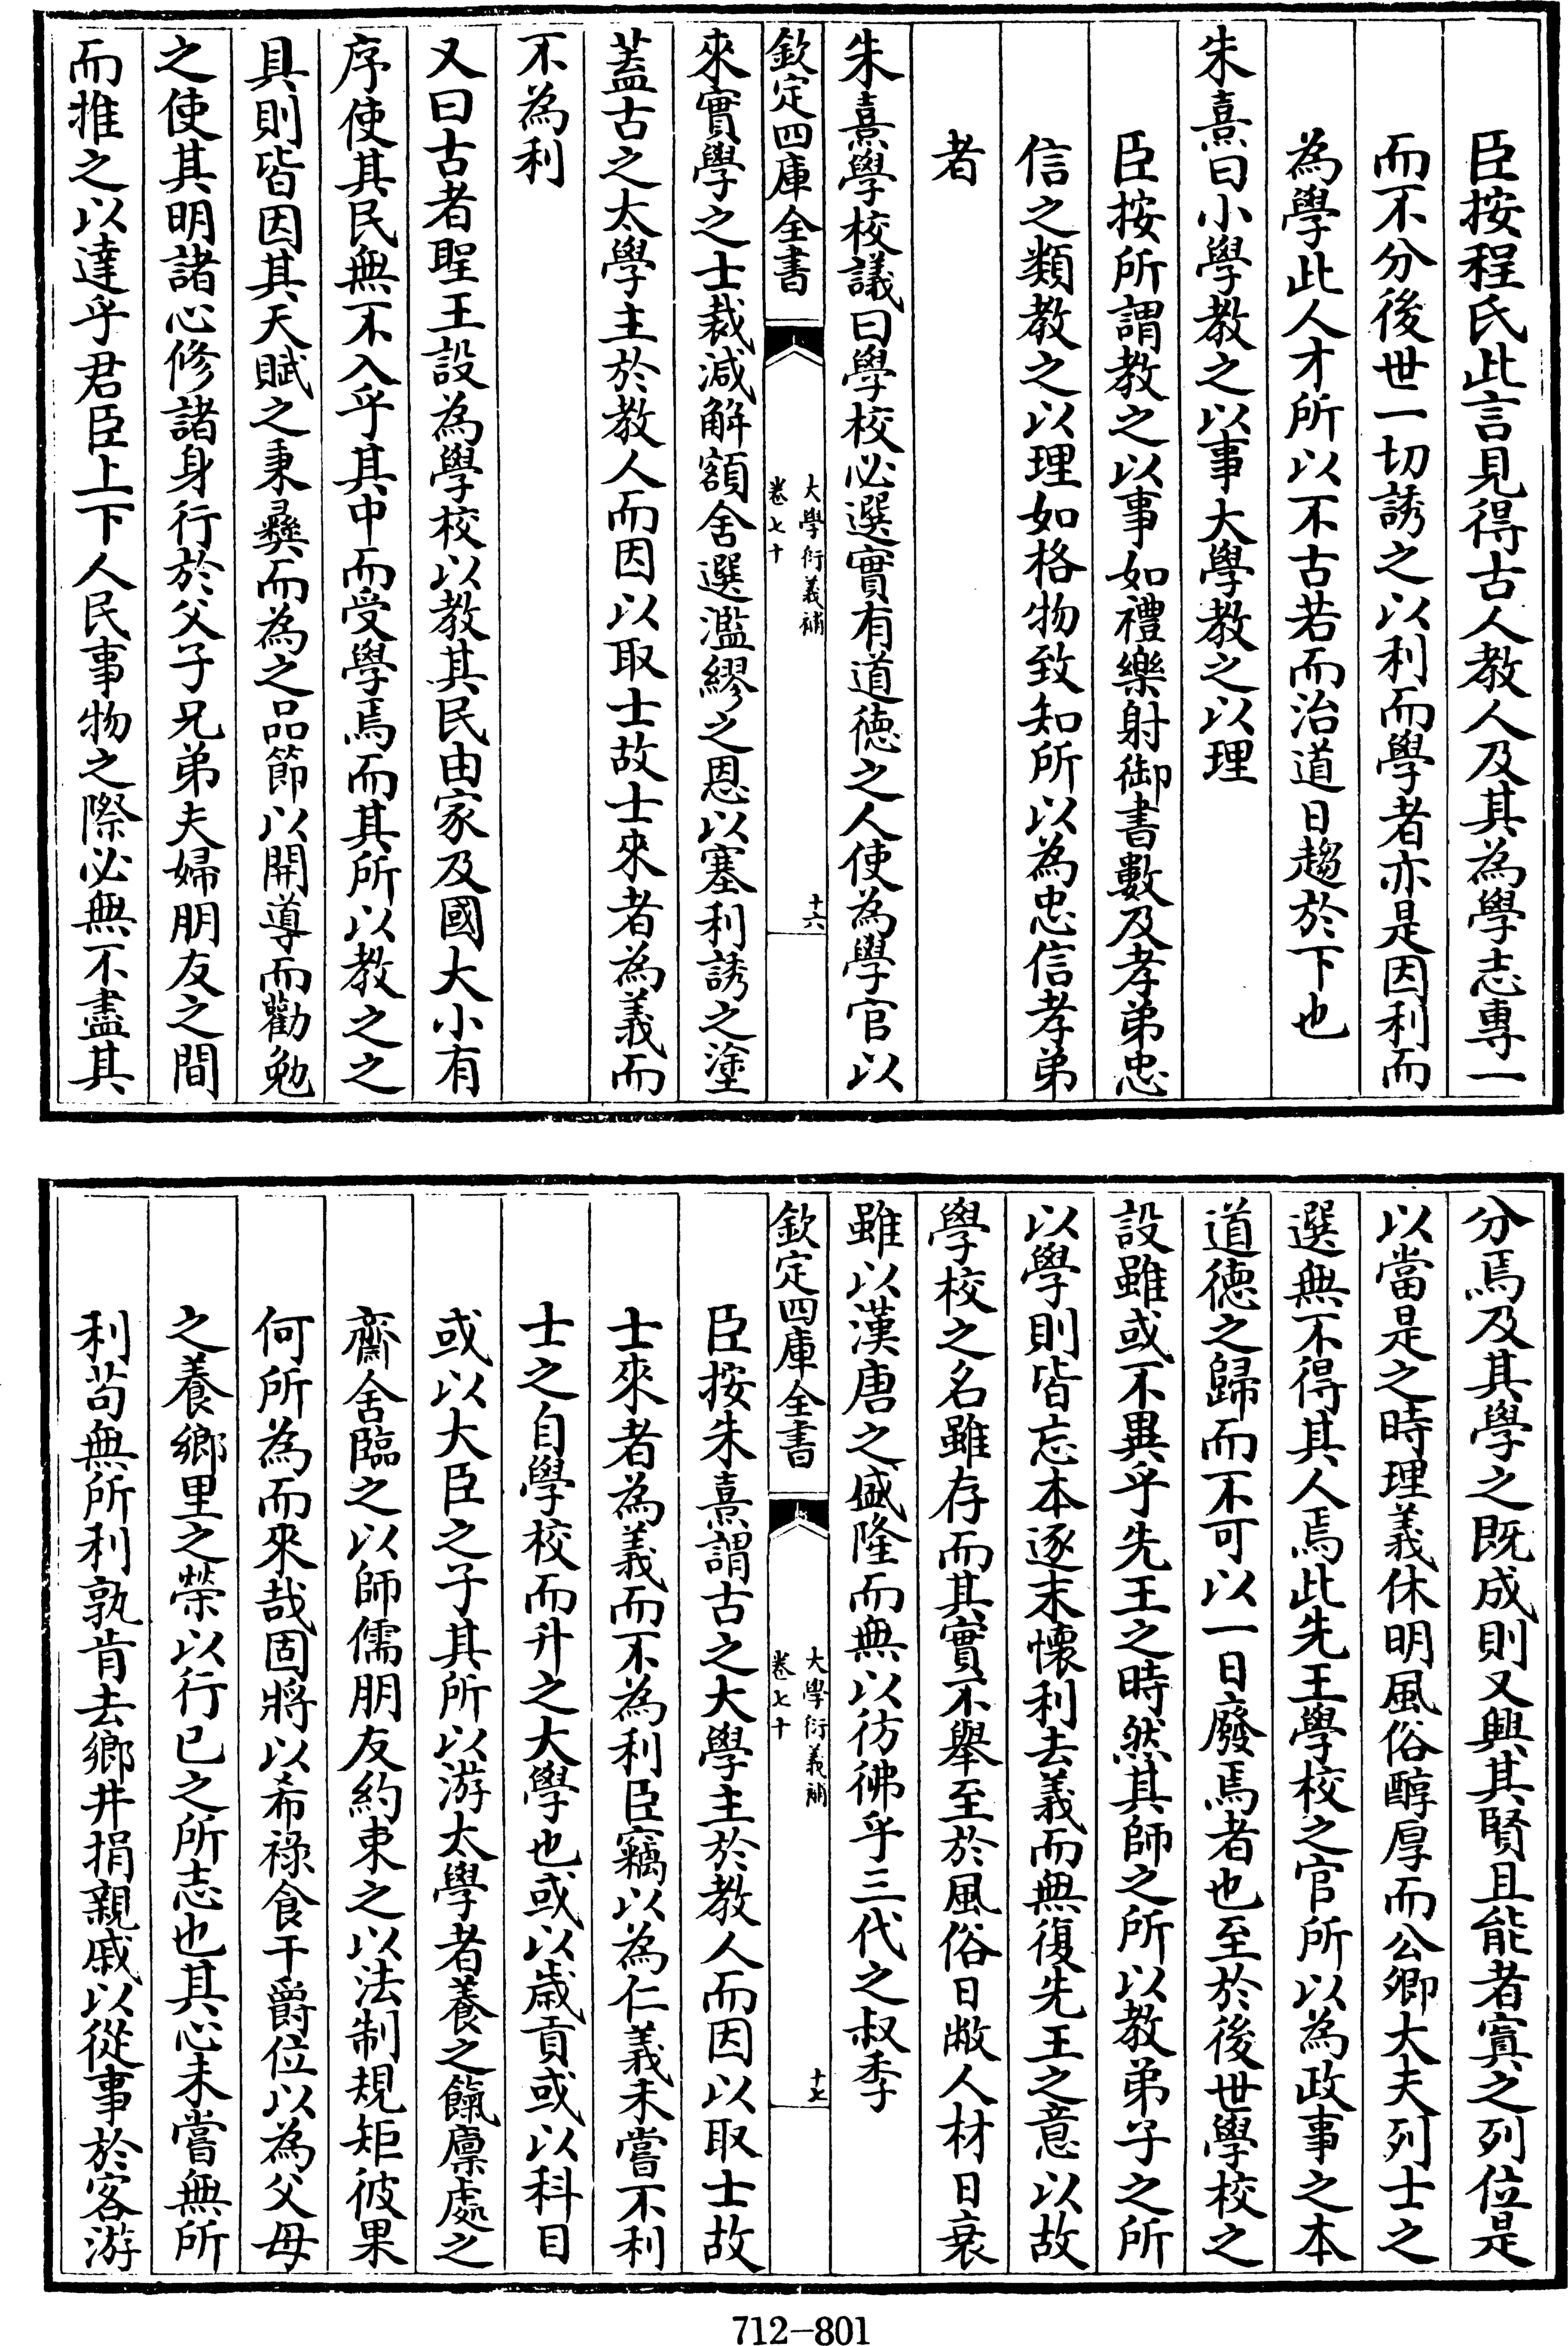 臣按程氏此言見得古人教人及其為學志專一
而不分後世一切誘之以利而學者亦是因利而
為學此人才所以不古若而治道日趨於下也
朱熹曰小學教之以事大學教之以理
臣按所謂教之以事如禮樂射御書數及孝弟忠
信之類教之以理如格物致知所以為忠信孝弟
者
朱熹學校議曰學校必選實有道德之人使為學官以
欽定四庫全書
大學衍義補
卷七十
十六
來實學之士裁減解額舍選濫繆之恩以塞利誘之塗
蓋古之太學主於教人而因以取士故士來者為義而
不為利
又曰古者聖王設為學校以教其民由家及國大小有
序使其民無不入乎其中而受學焉而其所以教之之
具則皆因其天賦之秉彛而為之品節以開導而勸勉
之使其明諸心修諸身行於父子兄弟夫婦朋友之間
而推之以達乎君臣上下人民事物之際必無不盡其
分焉及其學之既成則又興其賢且能者寘之列位是
以當是之時理義休明風俗醇厚而公卿大夫列士之
選無不得其人焉此先王學校之官所以為政事之本
道德之歸而不可以一日廢焉者也至於後世學校之
設雖或不異乎先王之時然其師之所以教弟子之所
以學則皆忘本逐末懷利去義而無復先王之意以故
學校之名雖存而其實不舉至於風俗日敝人材日衰
雖以漢唐之盛隆而無以彷彿乎三代之叔季
欽定四庫全書
大學衍義補
卷七十
十七
臣按朱熹謂古之大學主於教人而因以取士故
士來者為義而不為利臣竊以為仁義未嘗不利
士之自學校而升之大學也或以歳貢或以科目
或以大臣之子其所以游太學者養之餼廪處之
齋舍臨之以師儒朋友約束之以法制規矩彼果
何所為而來哉固將以希祿食干爵位以為父母
之養鄉里之榮以行已之所志也其心未嘗無所
利苟無所利孰肯去鄉井捐親戚以從事於客游
712-801